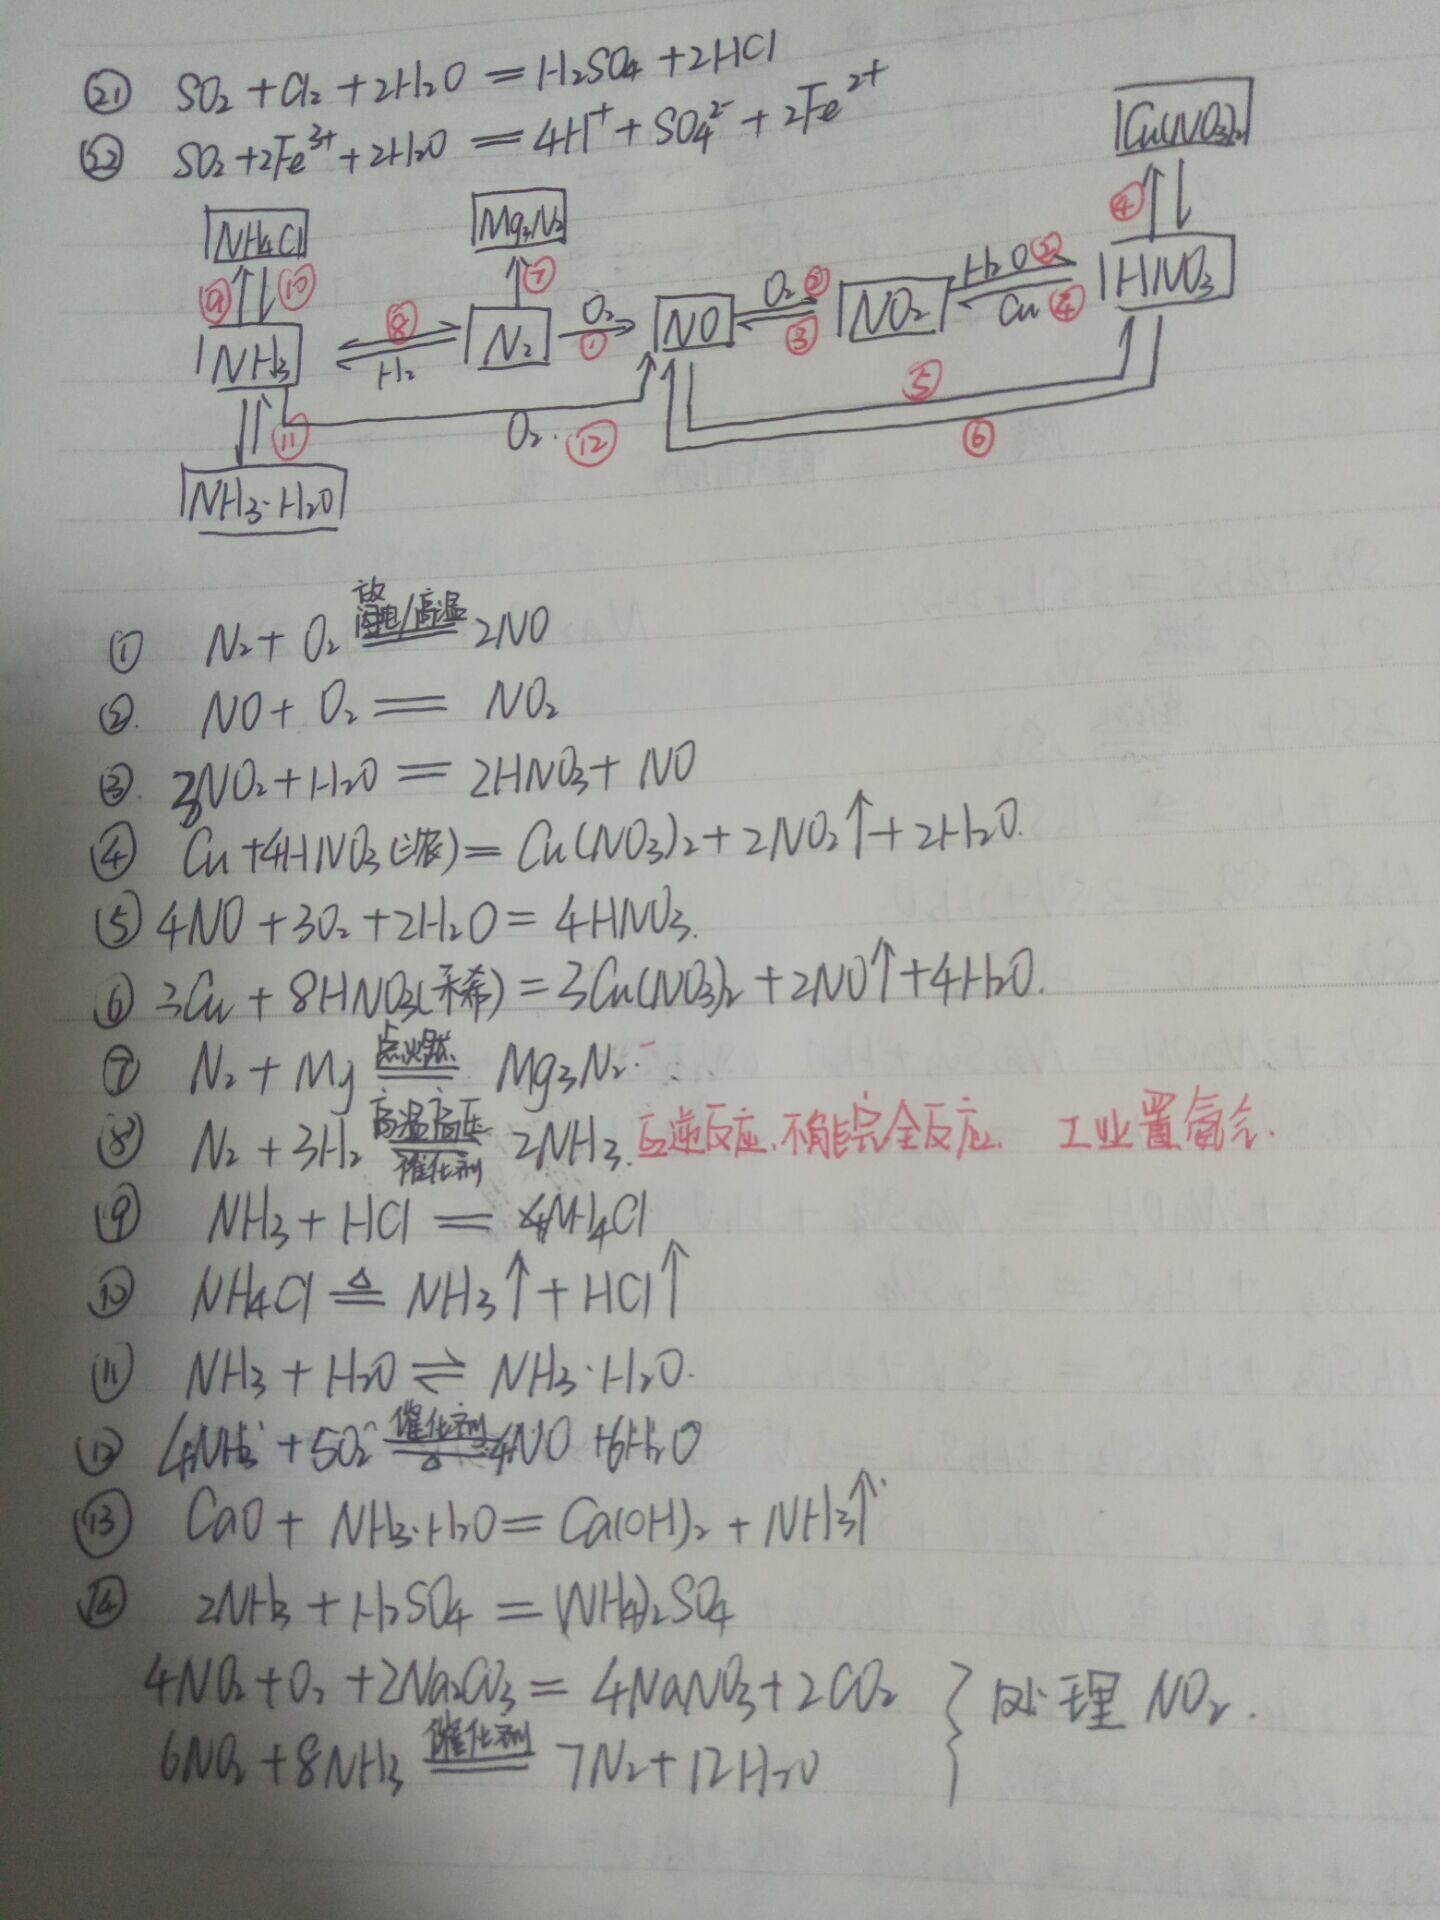 ㉑ SO₂+Cl₂+2H₂O=H₂SO₄+2HCl
㉒ SO₂+2Fe³⁺+2H₂O=4H⁺+SO₄²⁻+2Fe²⁺
Cu(NO₃)₂
④
NH₄Cl
Mg₃N₂
⑨ ⑩
⑦
NH₃ ⑧ H₂ N₂ O₂ ① NO O₂ ② ③ NO₂ H₂O ② Cu ④ HNO₃
⑤
⑪ O₂. ⑫ ⑥
NH₃·H₂O
放
① N₂+O₂ 闪电/高温 2NO
②. NO+O₂ = NO₂
③. 3NO₂+H₂O = 2HNO₃+NO
④ Cu+4HNO₃(浓)=Cu(NO₃)₂+2NO₂↑+2H₂O.
⑤ 4NO+3O₂+2H₂O=4HNO₃.
⑥ 3Cu+8HNO₃(稀)=3Cu(NO₃)₂+2NO↑+4H₂O.
⑦ N₂+Mg 点燃 Mg₃N₂
⑧ N₂+3H₂ 高温高压 催化剂 2NH₃. 可逆反应.不能完全反应. 工业置氨气.
⑨ NH₃+HCl = NH₄Cl
⑩ NH₄Cl ≜ NH₃↑+HCl↑
⑪ NH₃+H₂O ⇌ NH₃·H₂O.
⑫ 4NH₃+5O₂ 催化剂 △ 4NO+6H₂O
⑬ CaO+NH₃·H₂O=Ca(OH)₂+NH₃↑
⑭ 2NH₃+H₂SO₄=(NH₄)₂SO₄
4NO₂+O₂+2Na₂CO₃=4NaNO₃+2CO₂
处理NO₂.
6NO₂+8NH₃ 催化剂 7N₂+12H₂O